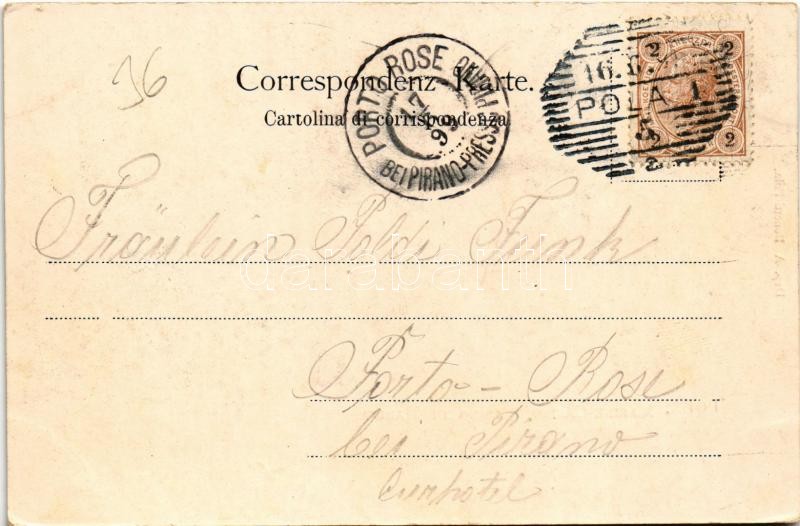 36
Correspondenz-Karte.
Cartolina di corrispondenza
PORTO ROSE
BEI PIRANO-PRESSO PIRANO
POLA 1
2 2
2 2
Fräulein Poldi Funk
Porto-Rose
bei Pirano
Curhotel
darabanth